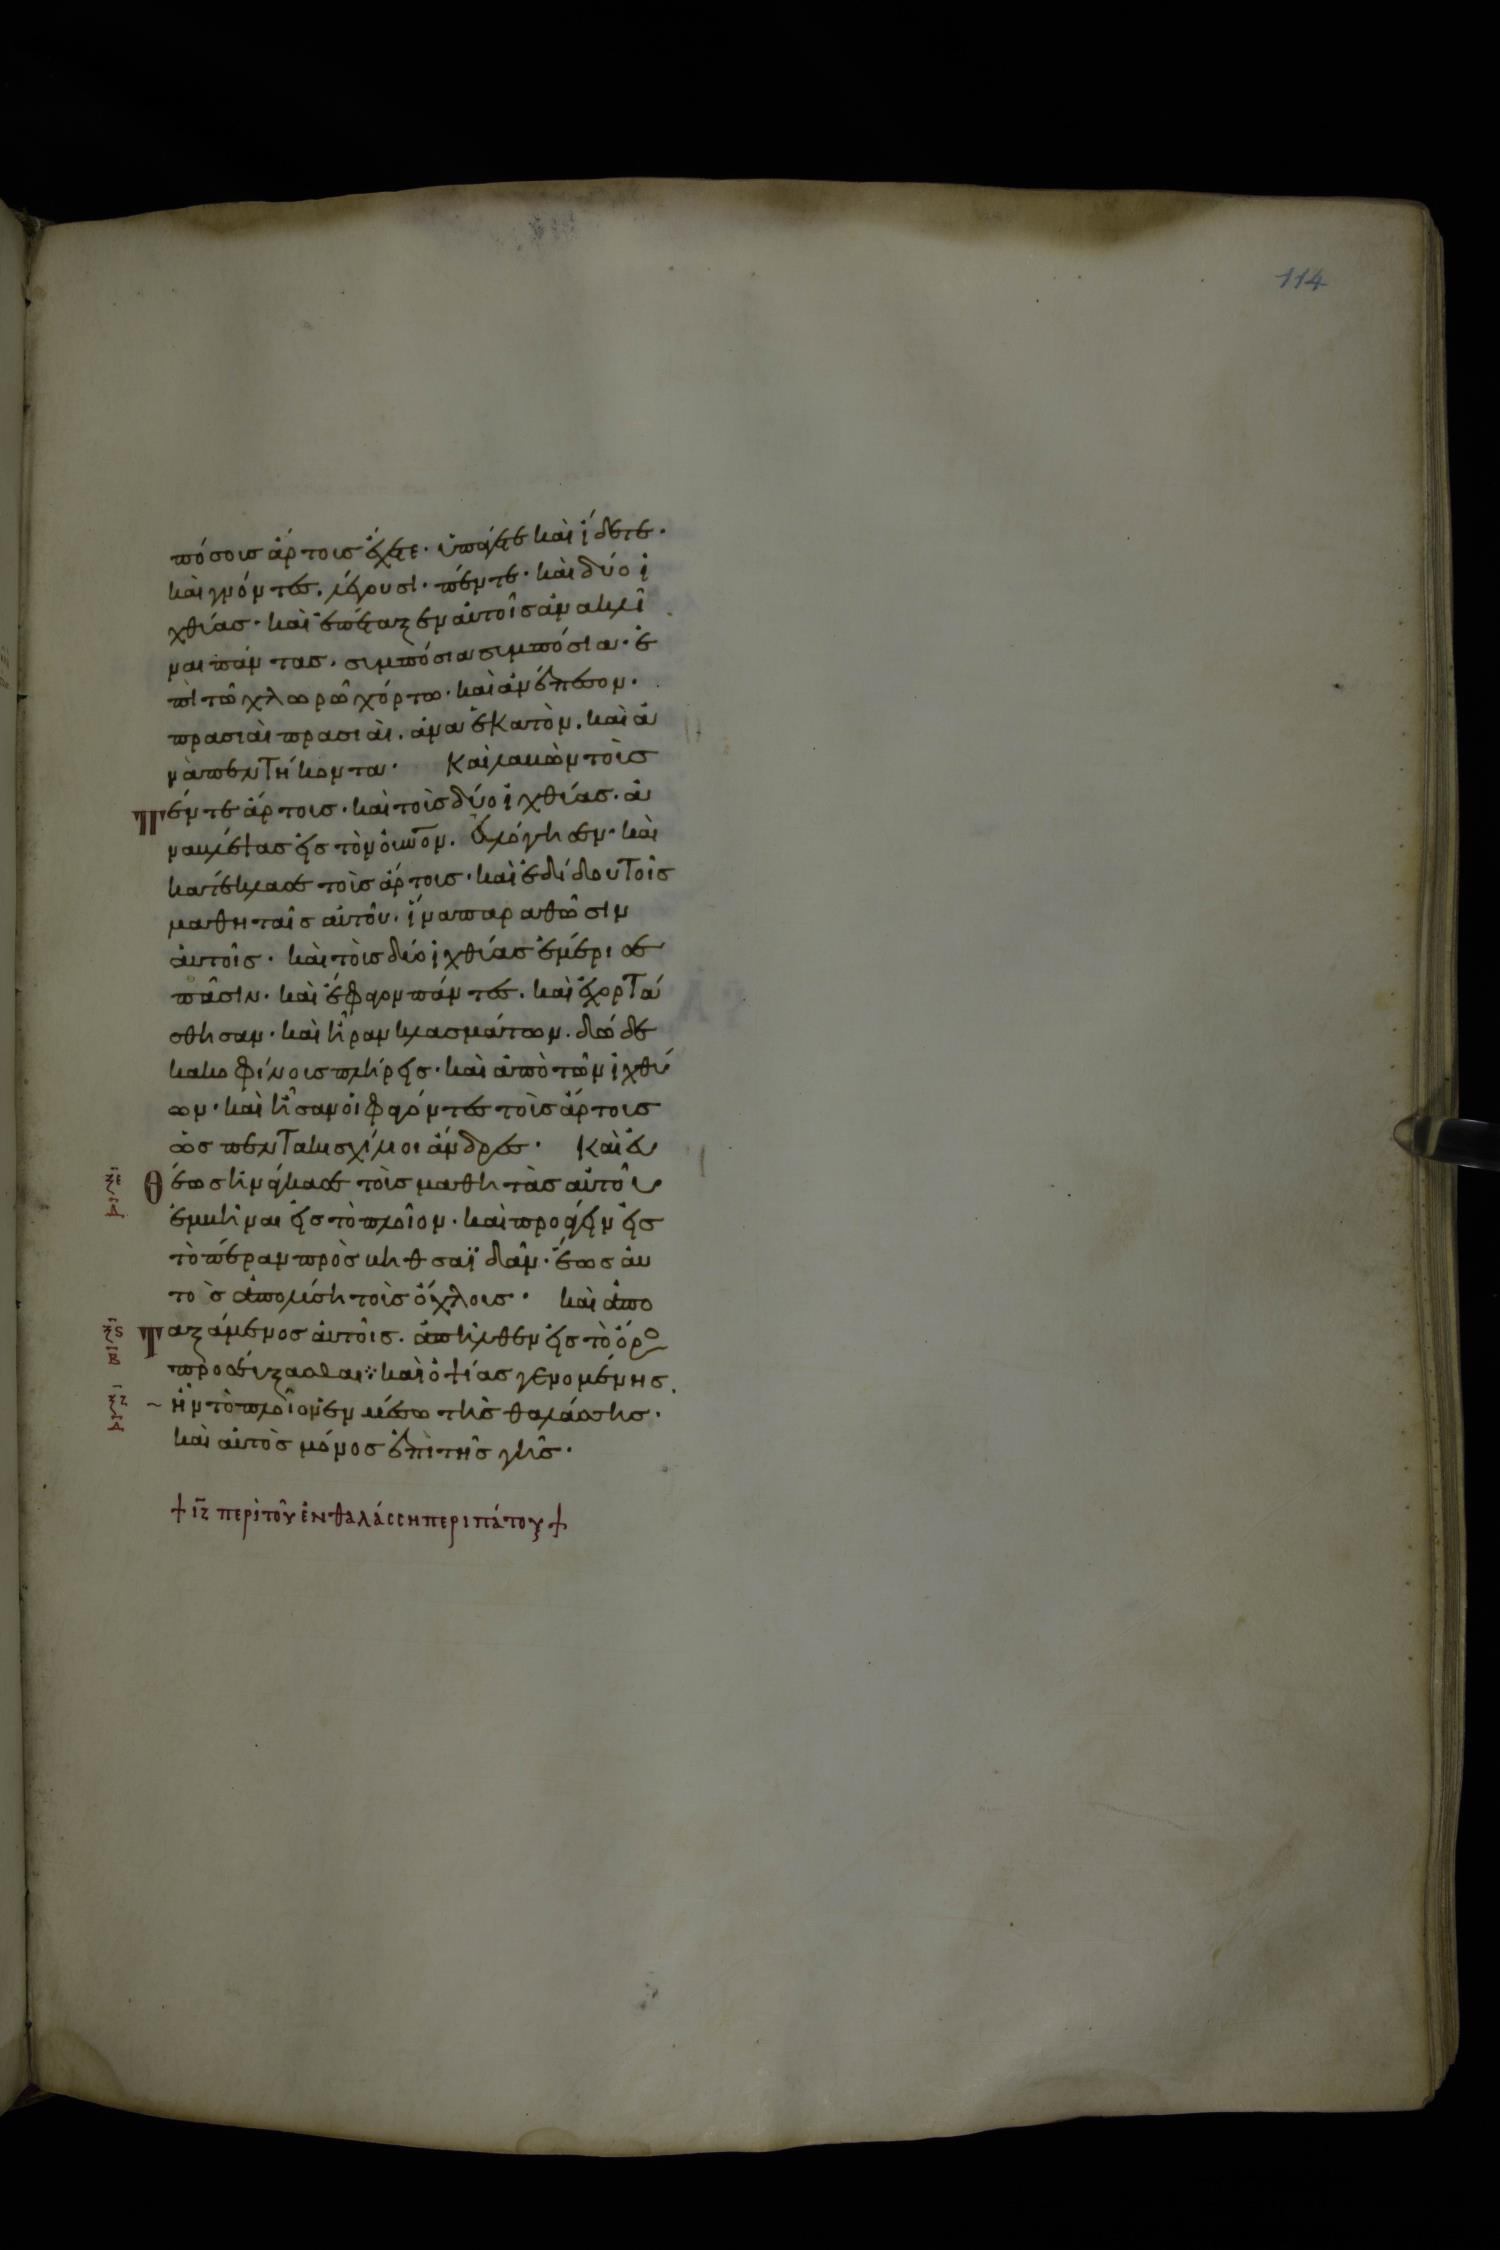 114
πόσους ἄρτους ἔχετε· ὑπάγετε καὶ ἴδετε·
καὶ γνόντες, λέγουσι· πέντε· καὶ δύο ἰ
χθύας· καὶ ἐπέταξεν αὐτοῖς ἀνακλῖ
ναι πάντας, συμπόσια συμπόσια· ἐ
πὶ τῶ χλωρῶ χόρτω· καὶ ἀνέπεσον·
πρασιαὶ πρασιαὶ, ἀνα ἑκατὸν, καὶ ἀ
νὰ πεντήκοντα· Καὶ λαβὼν τοὺς
Πέντε ἄρτους· καὶ τοὺς δύο ἰχθύας· ἀ
ναβλέψας εἰς τὸν οὐνον· εὐλόγησεν· καὶ
κατέκλασε τοὺς ἄρτους· καὶ ἐδίδου τοῖς
μαθηταῖς αὐτοῦ, ἵνα παραθῶσιν
αὐτοῖς· καὶ τοὺς δύο ἰχθύας ἐμέρισε
πᾶσιν· καὶ ἔφαγον πάντες, καὶ ἐχορτά
σθησαν· καὶ ἦραν κλασμάτων· δώδε
κα κοφίνους πλήρεις· καὶ ἀπὸ τῶν ἰχθύ
ων· καὶ ἦσαν οἱ φαγόντες τοὺς ἄρτους
ὡς πεντακισχίλιοι ἄνδρες· Καὶ εὐ
ξε Θέως ἠνάγκασε τοὺς μαθητὰς αὐτοῦ
δ ἐμβῆναι εἰς τὸ πλοῖον· καὶ προάγειν εἰς
τὸ πέραν πρὸς βηθσαϊδὰν· ἕως αὐ
τὸς ἀπολύση τοὺς ὄχλους· καὶ ἀπο
ξς Ταξάμενος αὐτοῖς, ἀπῆλθεν εἰς τὸ ὄρο
β προσεύξασθαι: καὶ ὀψίας γενομένης
ξζ ἦν τὸ πλοῖον ἐν μέσω τῆς θαλάσσης·
δ καὶ αὐτὸς μόνος ἐπὶ τῆς γῆς·
+ ιζ περὶ τοῦ ἐν θαλάσσῃ περιπάτου +